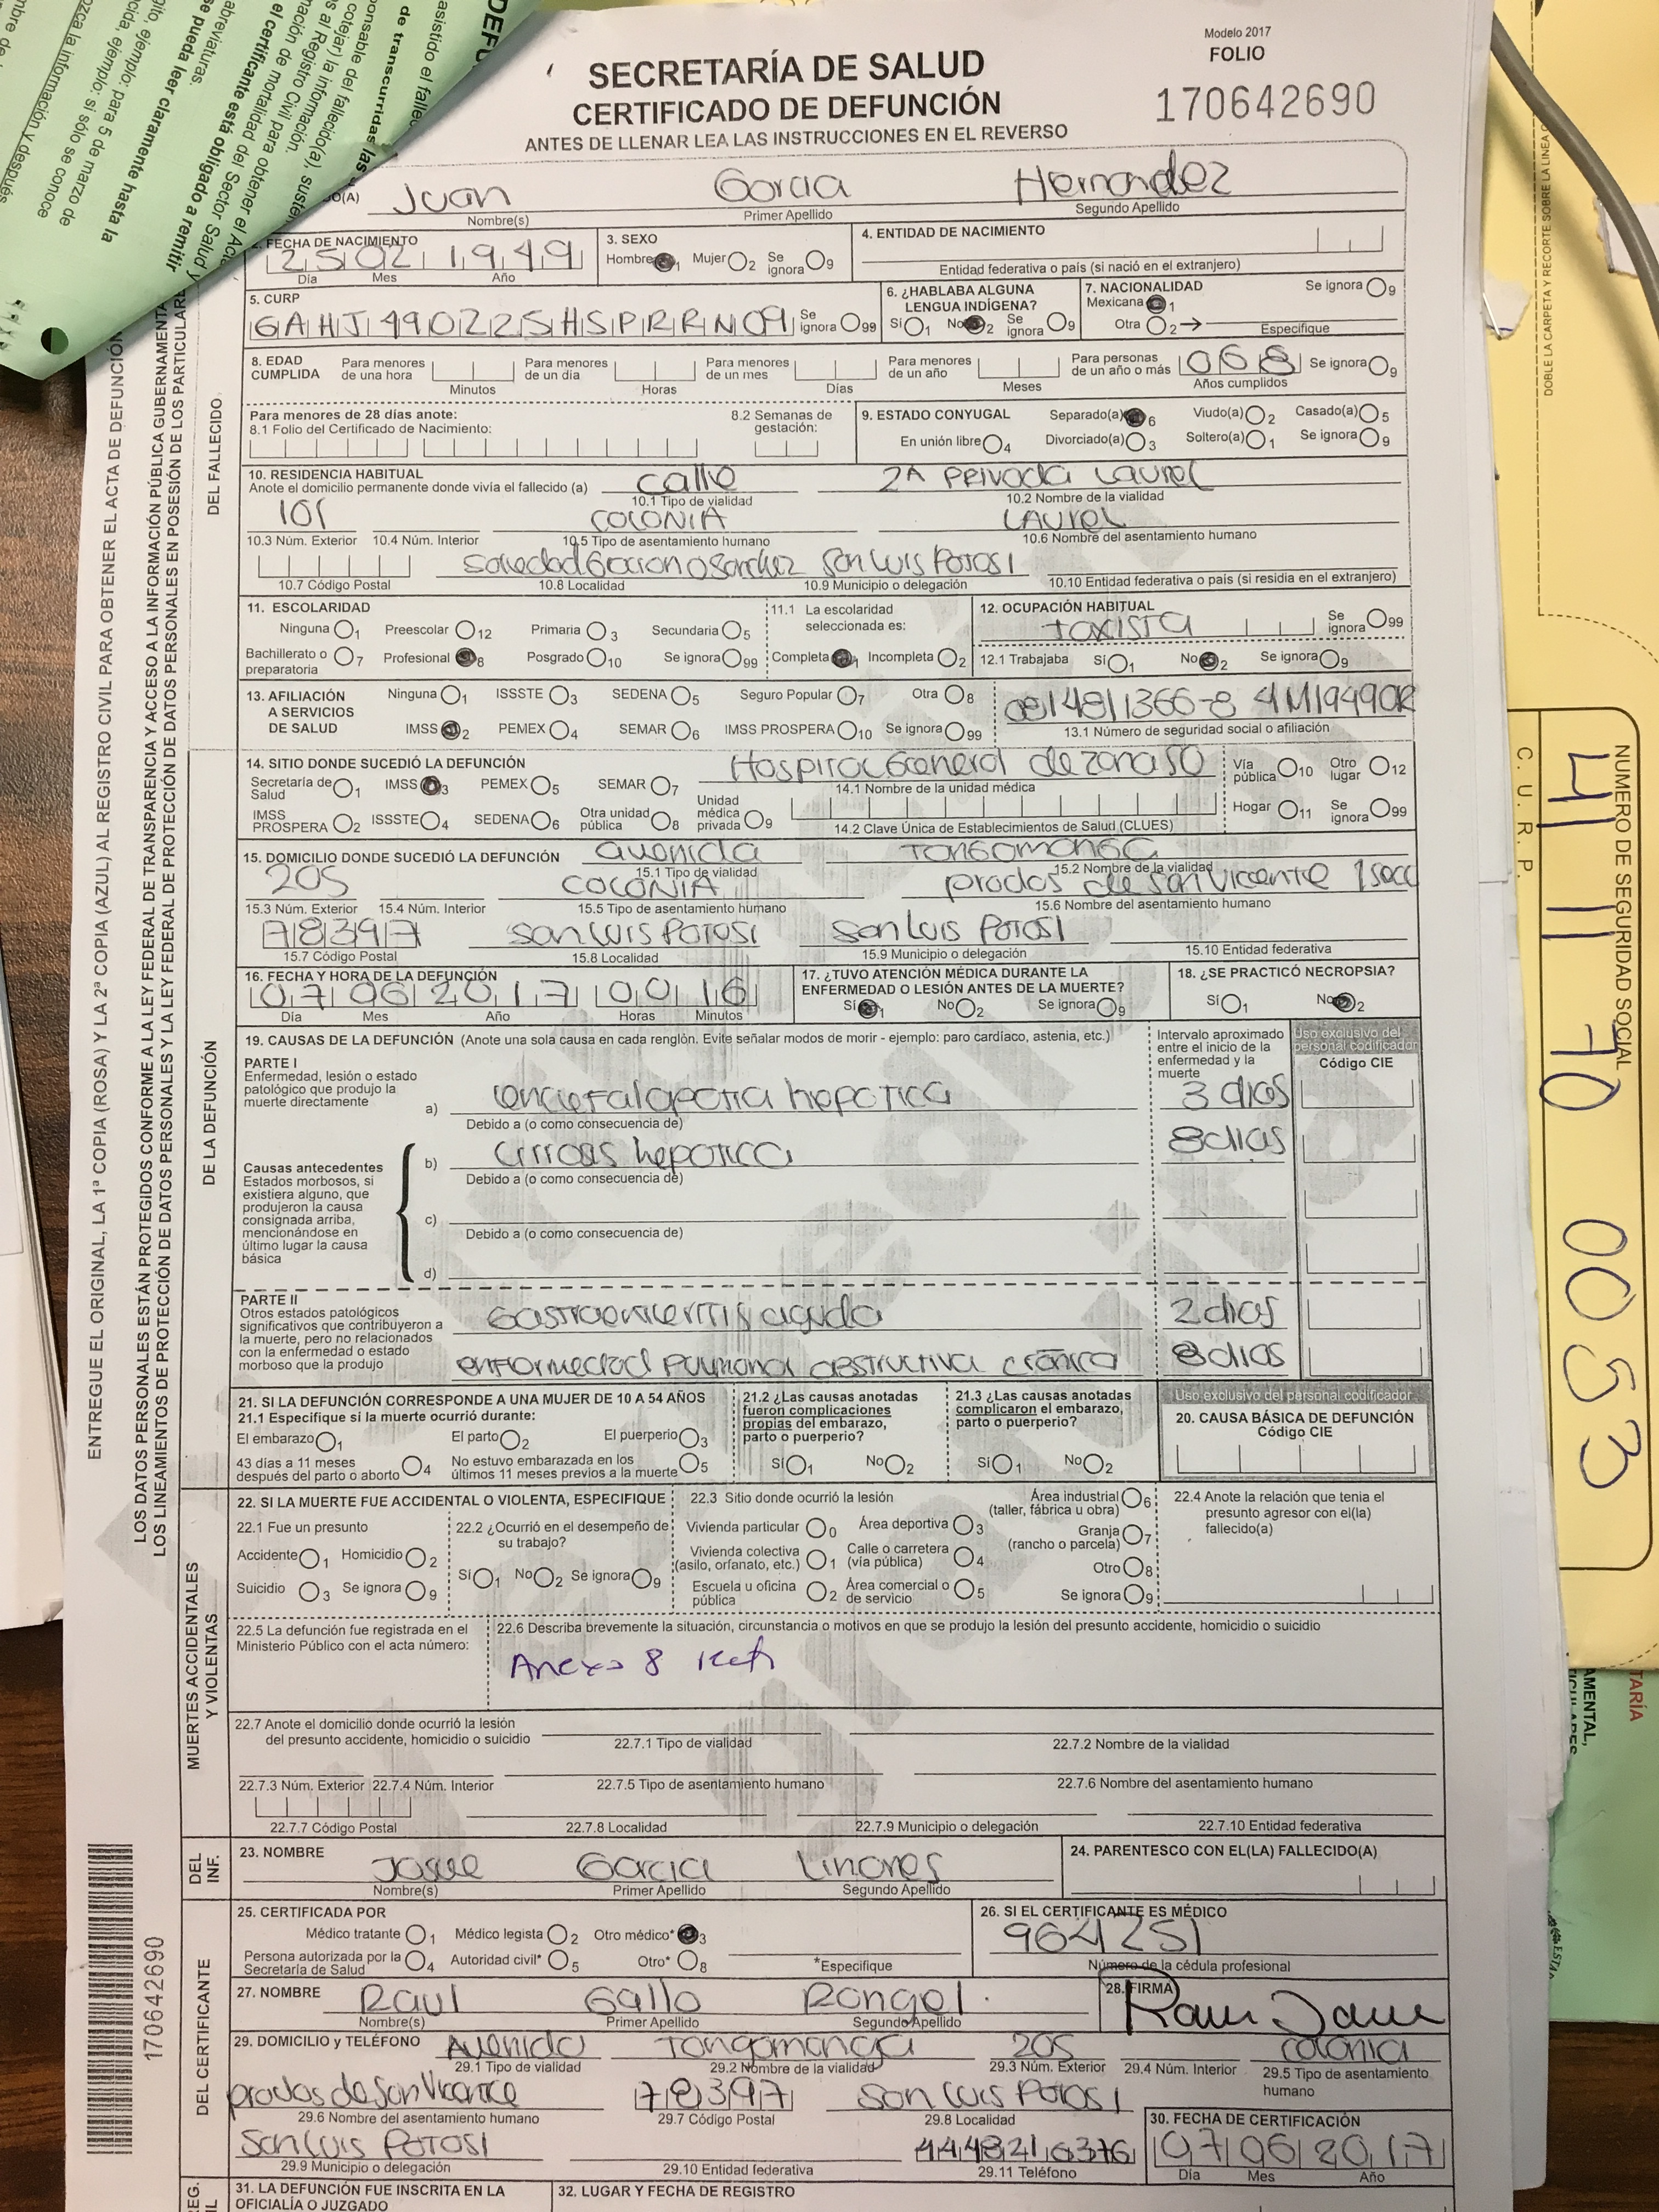 Modelo 2017
FOLIO
170642690
SECRETARÍA DE SALUD
CERTIFICADO DE DEFUNCIÓN
ANTES DE LLENAR LEA LAS INSTRUCCIONES EN EL REVERSO
Juan Garcia Hernandez
Nombre(s) Primer Apellido Segundo Apellido
2. FECHA DE NACIMIENTO 25 02 1949
Día Mes Año
3. SEXO
Hombre 1 Mujer 2 Se ignora 9
4. ENTIDAD DE NACIMIENTO
Entidad federativa o país (si nació en el extranjero)
5. CURP
GAHJ490225HSPRRN09 Se ignora 99
6. ¿HABLABA ALGUNA LENGUA INDÍGENA?
Sí 1 No 2 Se ignora 9
7. NACIONALIDAD Se ignora 9
Mexicana 1
Otra 2 Especifique
8. EDAD CUMPLIDA
Para menores de una hora Minutos
Para menores de un día Horas
Para menores de un mes Días
Para menores de un año Meses
Para personas de un año o más 068 Años cumplidos Se ignora 9
Para menores de 28 días anote:
8.1 Folio del Certificado de Nacimiento:
8.2 Semanas de gestación:
9. ESTADO CONYUGAL Separado(a) 6 Viudo(a) 2 Casado(a) 5
En unión libre 4 Divorciado(a) 3 Soltero(a) 1 Se ignora 9
10. RESIDENCIA HABITUAL
Anote el domicilio permanente donde vivía el fallecido (a) calle 2A Privada Laurel
10.1 Tipo de vialidad 10.2 Nombre de la vialidad
101 COLONIA LAUREL
10.3 Núm. Exterior 10.4 Núm. Interior 10.5 Tipo de asentamiento humano 10.6 Nombre del asentamiento humano
San Luis Potosi
10.7 Código Postal 10.8 Localidad 10.9 Municipio o delegación 10.10 Entidad federativa o país (si residia en el extranjero)
11. ESCOLARIDAD
Ninguna 1 Preescolar 12 Primaria 3 Secundaria 5
Bachillerato o preparatoria 7 Profesional 8 Posgrado 10 Se ignora 99
11.1 La escolaridad seleccionada es:
Completa 1 Incompleta 2
12. OCUPACIÓN HABITUAL
taxista Se ignora 99
12.1 Trabajaba Sí 1 No 2 Se ignora 9
13. AFILIACIÓN A SERVICIOS DE SALUD
Ninguna 1 ISSSTE 3 SEDENA 5 Seguro Popular 7 Otra 8
IMSS 2 PEMEX 4 SEMAR 6 IMSS PROSPERA 10 Se ignora 99
13.1 Número de seguridad social o afiliación
14. SITIO DONDE SUCEDIÓ LA DEFUNCIÓN
Hospital General de zona 50
14.1 Nombre de la unidad médica
Secretaría de Salud 1 IMSS 3 PEMEX 5 SEMAR 7
IMSS PROSPERA 2 ISSSTE 4 SEDENA 6 Otra unidad pública 8 Unidad médica privada 9
14.2 Clave Única de Establecimientos de Salud (CLUES)
Vía pública 10 Otro lugar 12
Hogar 11 Se ignora 99
15. DOMICILIO DONDE SUCEDIÓ LA DEFUNCIÓN avenida Tangamanga
15.1 Tipo de vialidad 15.2 Nombre de la vialidad
205 COLONIA prados de San Vicente 1 secc
15.3 Núm. Exterior 15.4 Núm. Interior 15.5 Tipo de asentamiento humano 15.6 Nombre del asentamiento humano
78397 San Luis Potosi San Luis Potosi
15.7 Código Postal 15.8 Localidad 15.9 Municipio o delegación 15.10 Entidad federativa
16. FECHA Y HORA DE LA DEFUNCIÓN
07 06 2017 00 16
Día Mes Año Horas Minutos
17. ¿TUVO ATENCIÓN MÉDICA DURANTE LA ENFERMEDAD O LESIÓN ANTES DE LA MUERTE?
Sí 1 No 2 Se ignora 9
18. ¿SE PRACTICÓ NECROPSIA?
Sí 1 No 2
19. CAUSAS DE LA DEFUNCIÓN (Anote una sola causa en cada renglón. Evite señalar modos de morir - ejemplo: paro cardíaco, astenia, etc.)
Intervalo aproximado entre el inicio de la enfermedad y la muerte
Uso exclusivo del personal codificador
Código CIE
PARTE I
Enfermedad, lesión o estado patológico que produjo la muerte directamente
a) encefalopatia hepatica 3 dias
Debido a (o como consecuencia de)
b) cirrosis hepatica 8 dias
Debido a (o como consecuencia de)
Causas antecedentes
Estados morbosos, si existiera alguno, que produjeron la causa consignada arriba, mencionándose en último lugar la causa básica
c)
Debido a (o como consecuencia de)
d)
PARTE II
Otros estados patológicos significativos que contribuyeron a la muerte, pero no relacionados con la enfermedad o estado morboso que la produjo
Gastroenteritis aguda 2 dias
enfermedad Pulmonar obstructiva crónica 8 dias
21. SI LA DEFUNCIÓN CORRESPONDE A UNA MUJER DE 10 A 54 AÑOS
21.1 Especifique si la muerte ocurrió durante:
El embarazo 1 El parto 2 El puerperio 3
43 días a 11 meses después del parto o aborto 4 No estuvo embarazada en los últimos 11 meses previos a la muerte 5
21.2 ¿Las causas anotadas fueron complicaciones propias del embarazo, parto o puerperio?
Sí 1 No 2
21.3 ¿Las causas anotadas complicaron el embarazo, parto o puerperio?
Sí 1 No 2
Uso exclusivo del personal codificador
20. CAUSA BÁSICA DE DEFUNCIÓN
Código CIE
22. SI LA MUERTE FUE ACCIDENTAL O VIOLENTA, ESPECIFIQUE
22.1 Fue un presunto
Accidente 1 Homicidio 2
Suicidio 3 Se ignora 9
22.2 ¿Ocurrió en el desempeño de su trabajo?
Sí 1 No 2 Se ignora 9
22.3 Sitio donde ocurrió la lesión
Vivienda particular 0 Área deportiva 3 Área industrial (taller, fábrica u obra) 6
Vivienda colectiva (asilo, orfanato, etc.) 1 Calle o carretera (vía pública) 4 Granja (rancho o parcela) 7
Otro 8
Escuela u oficina pública 2 Área comercial o de servicio 5 Se ignora 9
22.4 Anote la relación que tenia el presunto agresor con el(la) fallecido(a)
22.5 La defunción fue registrada en el Ministerio Público con el acta número:
22.6 Describa brevemente la situación, circunstancia o motivos en que se produjo la lesión del presunto accidente, homicidio o suicidio
Anexo 8
22.7 Anote el domicilio donde ocurrió la lesión del presunto accidente, homicidio o suicidio
22.7.1 Tipo de vialidad 22.7.2 Nombre de la vialidad
22.7.3 Núm. Exterior 22.7.4 Núm. Interior 22.7.5 Tipo de asentamiento humano 22.7.6 Nombre del asentamiento humano
22.7.7 Código Postal 22.7.8 Localidad 22.7.9 Municipio o delegación 22.7.10 Entidad federativa
23. NOMBRE Josue Garcia Linares
Nombre(s) Primer Apellido Segundo Apellido
24. PARENTESCO CON EL(LA) FALLECIDO(A)
25. CERTIFICADA POR
Médico tratante 1 Médico legista 2 Otro médico* 3
Persona autorizada por la Secretaría de Salud 4 Autoridad civil* 5 Otro* 8 *Especifique
26. SI EL CERTIFICANTE ES MÉDICO
964251
Número de la cédula profesional
27. NOMBRE Raul Gallo Rangel
Nombre(s) Primer Apellido Segundo Apellido
28. FIRMA
29. DOMICILIO y TELÉFONO Avenida Tangamanga 205 colonia
29.1 Tipo de vialidad 29.2 Nombre de la vialidad 29.3 Núm. Exterior 29.4 Núm. Interior 29.5 Tipo de asentamiento humano
prados de San Vicente 78397 San Luis Potosi
29.6 Nombre del asentamiento humano 29.7 Código Postal 29.8 Localidad
San Luis Potosi 4448216376
29.9 Municipio o delegación 29.10 Entidad federativa 29.11 Teléfono
30. FECHA DE CERTIFICACIÓN
07 06 2017
Día Mes Año
31. LA DEFUNCIÓN FUE INSCRITA EN LA OFICIALÍA O JUZGADO
32. LUGAR Y FECHA DE REGISTRO
DEL FALLECIDO
DE LA DEFUNCIÓN
MUERTES ACCIDENTALES Y VIOLENTAS
DEL INF.
DEL CERTIFICANTE
170642690
ENTREGUE EL ORIGINAL, LA 1ª COPIA (ROSA) Y LA 2ª COPIA (AZUL) AL REGISTRO CIVIL PARA OBTENER EL ACTA DE DEFUNCIÓN
NÚMERO DE SEGURIDAD SOCIAL
41 11 70 0053
C. U. R. P.